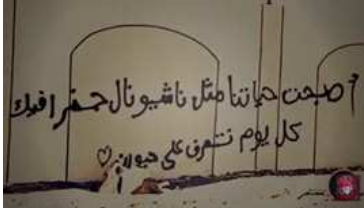 أصبحت حياتنا مثل ناشيونال جغرافيك
كل يوم نتعرف على حيوان